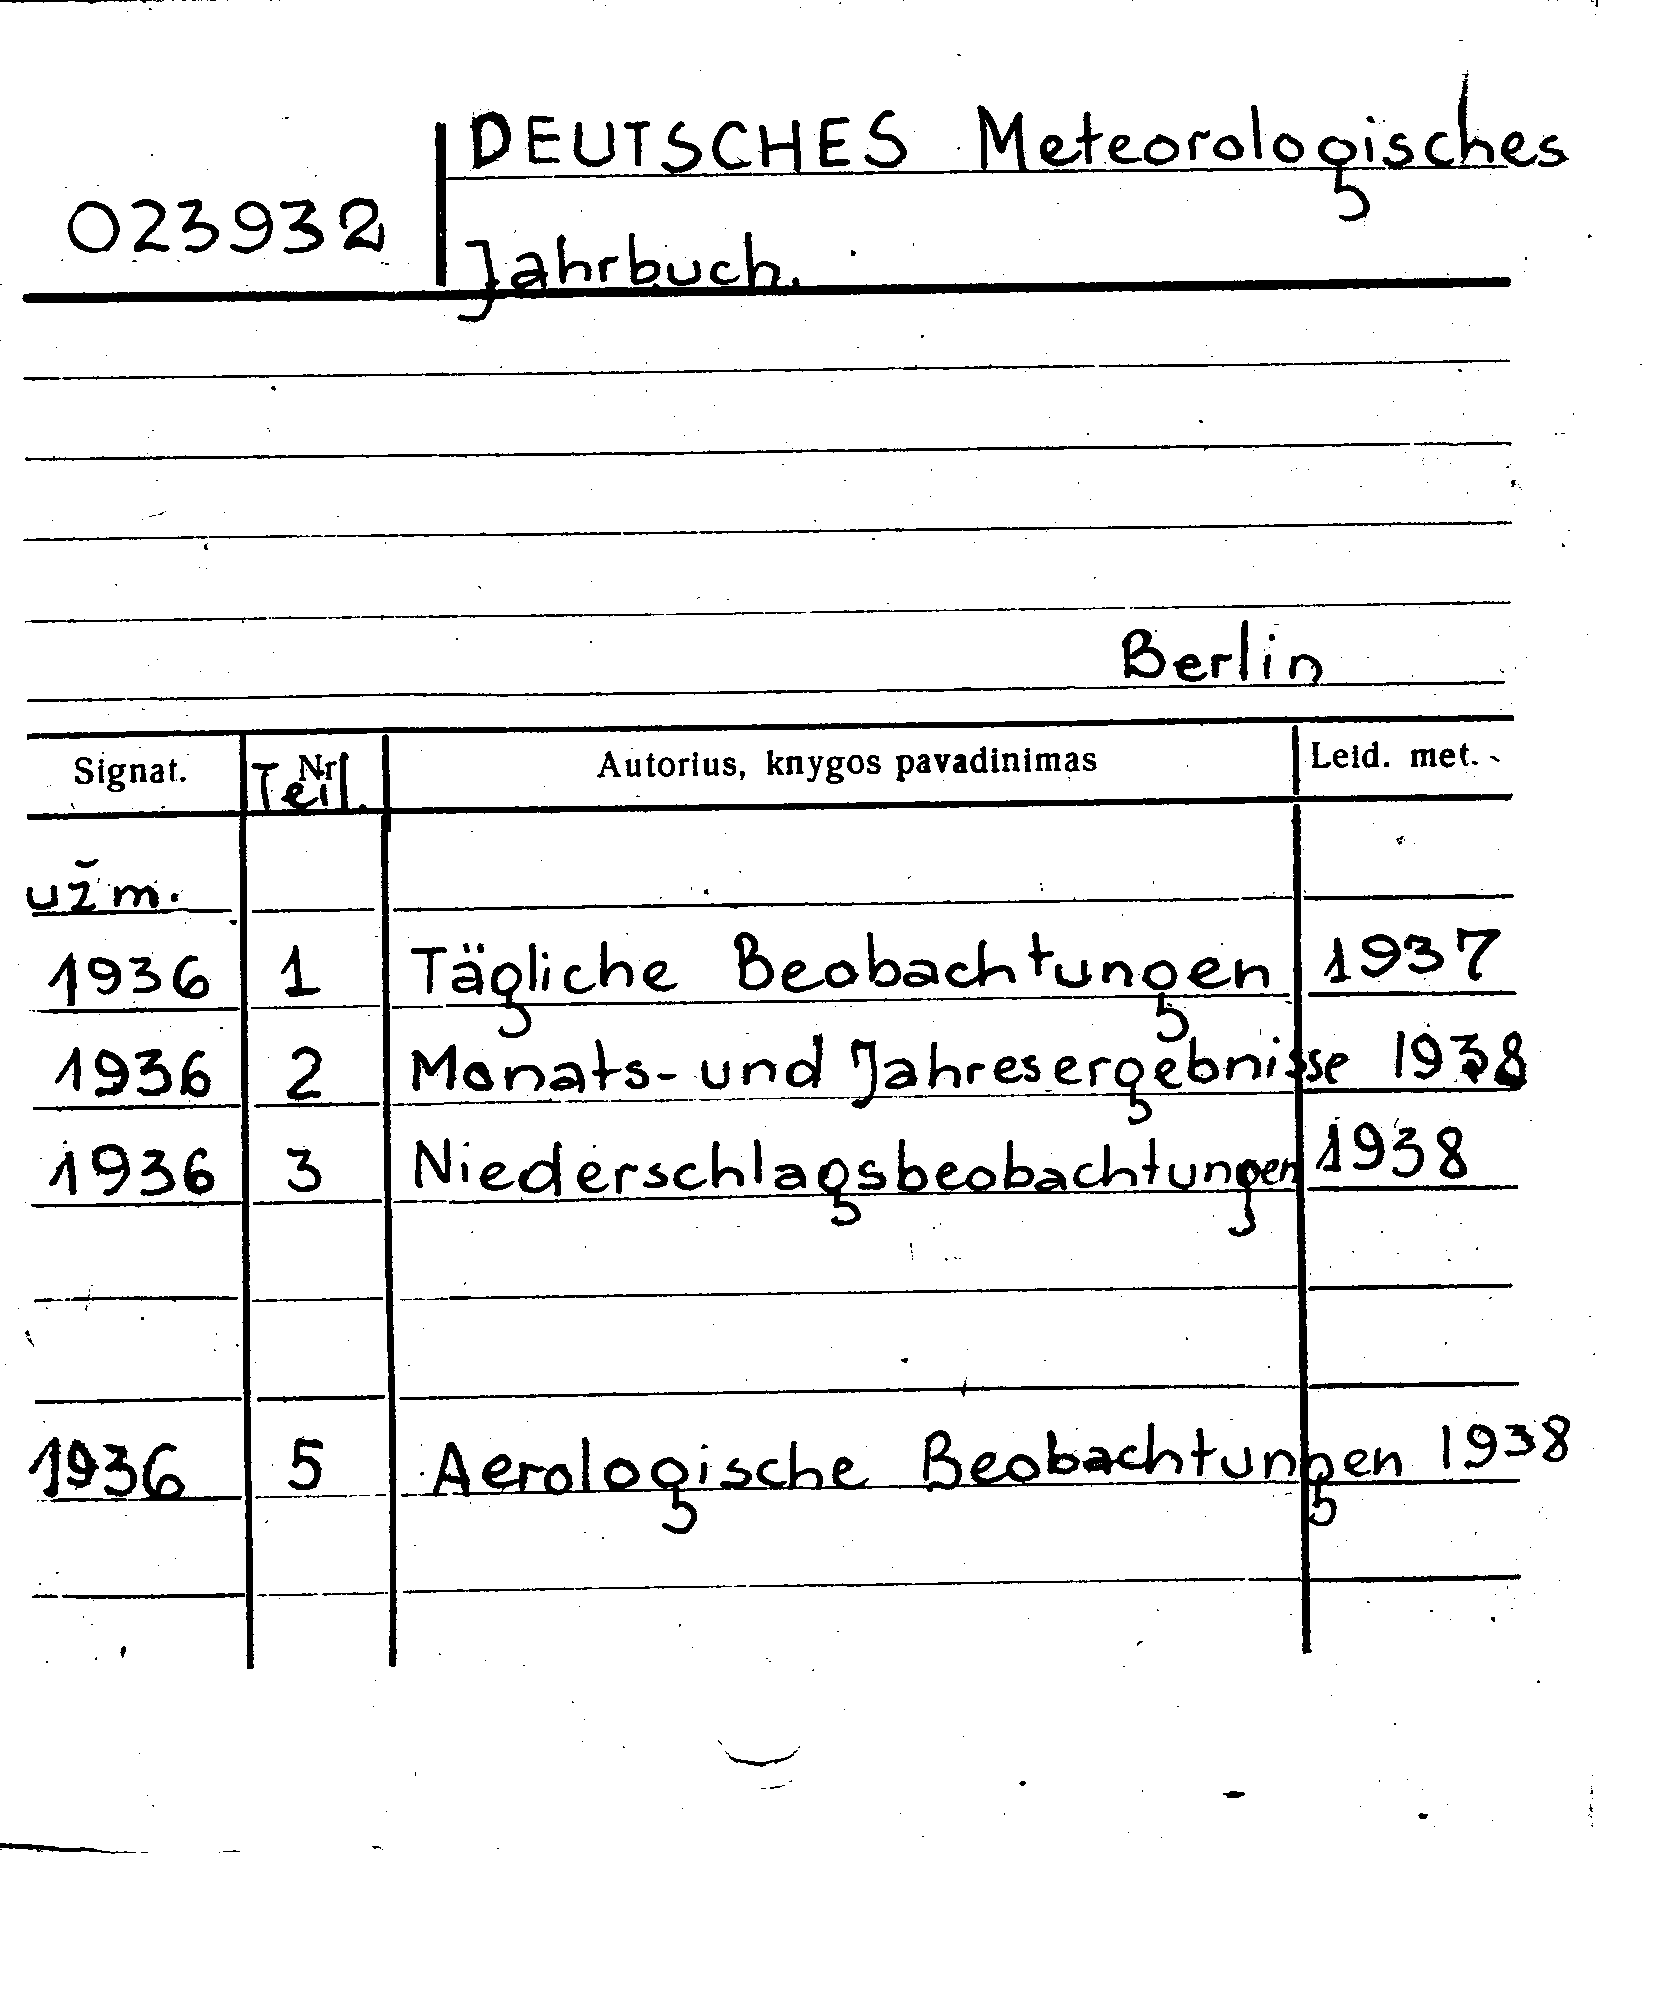 DEUTSCHES Meteorologisches
023932
Jahrbuch.
Berlin
Signat. Nr Teil. Autorius, knygos pavadinimas Leid. met.
užm.
1936 1 Tägliche Beobachtungen 1937
1936 2 Monats- und Jahresergebnisse 1938
1936 3 Niederschlagsbeobachtungen 1938
1936 5 Aerologische Beobachtungen 1938